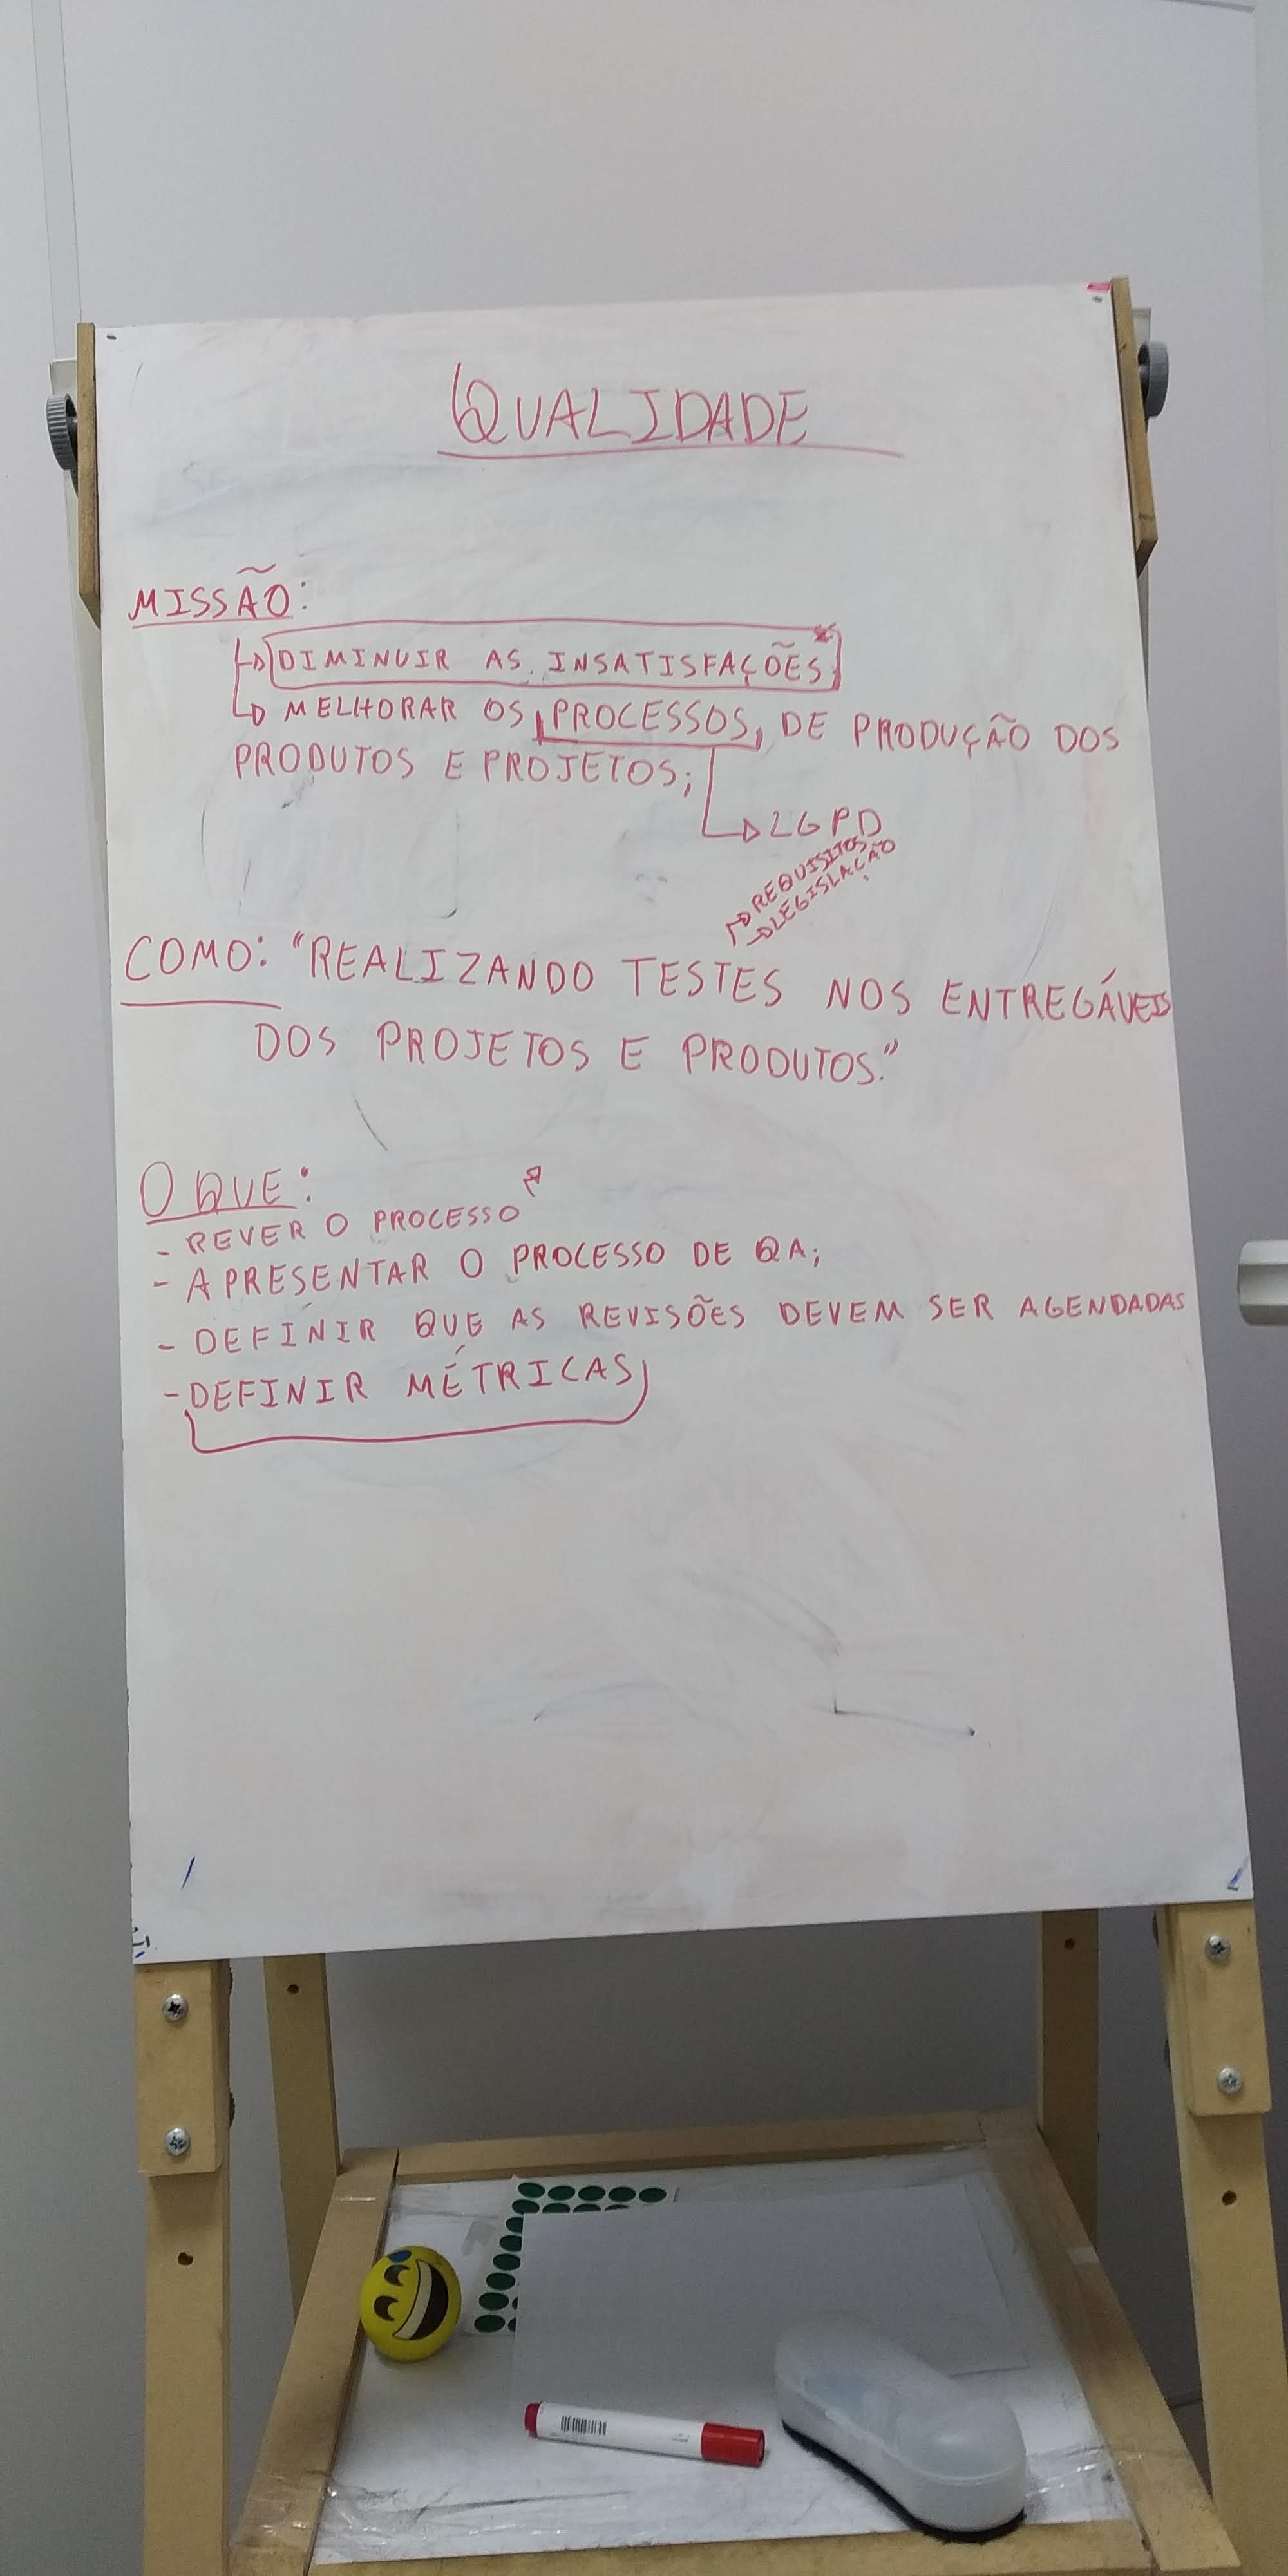 QUALIDADE
MISSÃO:
DIMINUIR AS INSATISFAÇÕES;
MELHORAR OS PROCESSOS, DE PRODUÇÃO DOS
PRODUTOS E PROJETOS;
LGPD
REQUISITOS
LEGISLAÇÃO
COMO: "REALIZANDO TESTES NOS ENTREGÁVEIS
DOS PROJETOS E PRODUTOS."
O QUE:
- REVER O PROCESSO
- APRESENTAR O PROCESSO DE QA;
- DEFINIR QUE AS REVISÕES DEVEM SER AGENDADAS
- DEFINIR MÉTRICAS